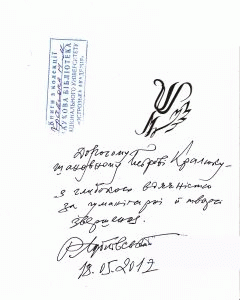 Книги з колекції
НАУКОВА БІБЛІОТЕКА
НАЦІОНАЛЬНОГО УНІВЕРСИТЕТУ
«ОСТРОЗЬКА АКАДЕМІЯ»
Дорогому,
шановному Петрові Кралюку -
з глибокою вдячністю
за гуманітарні й творчі
звершення.
18.05.2012